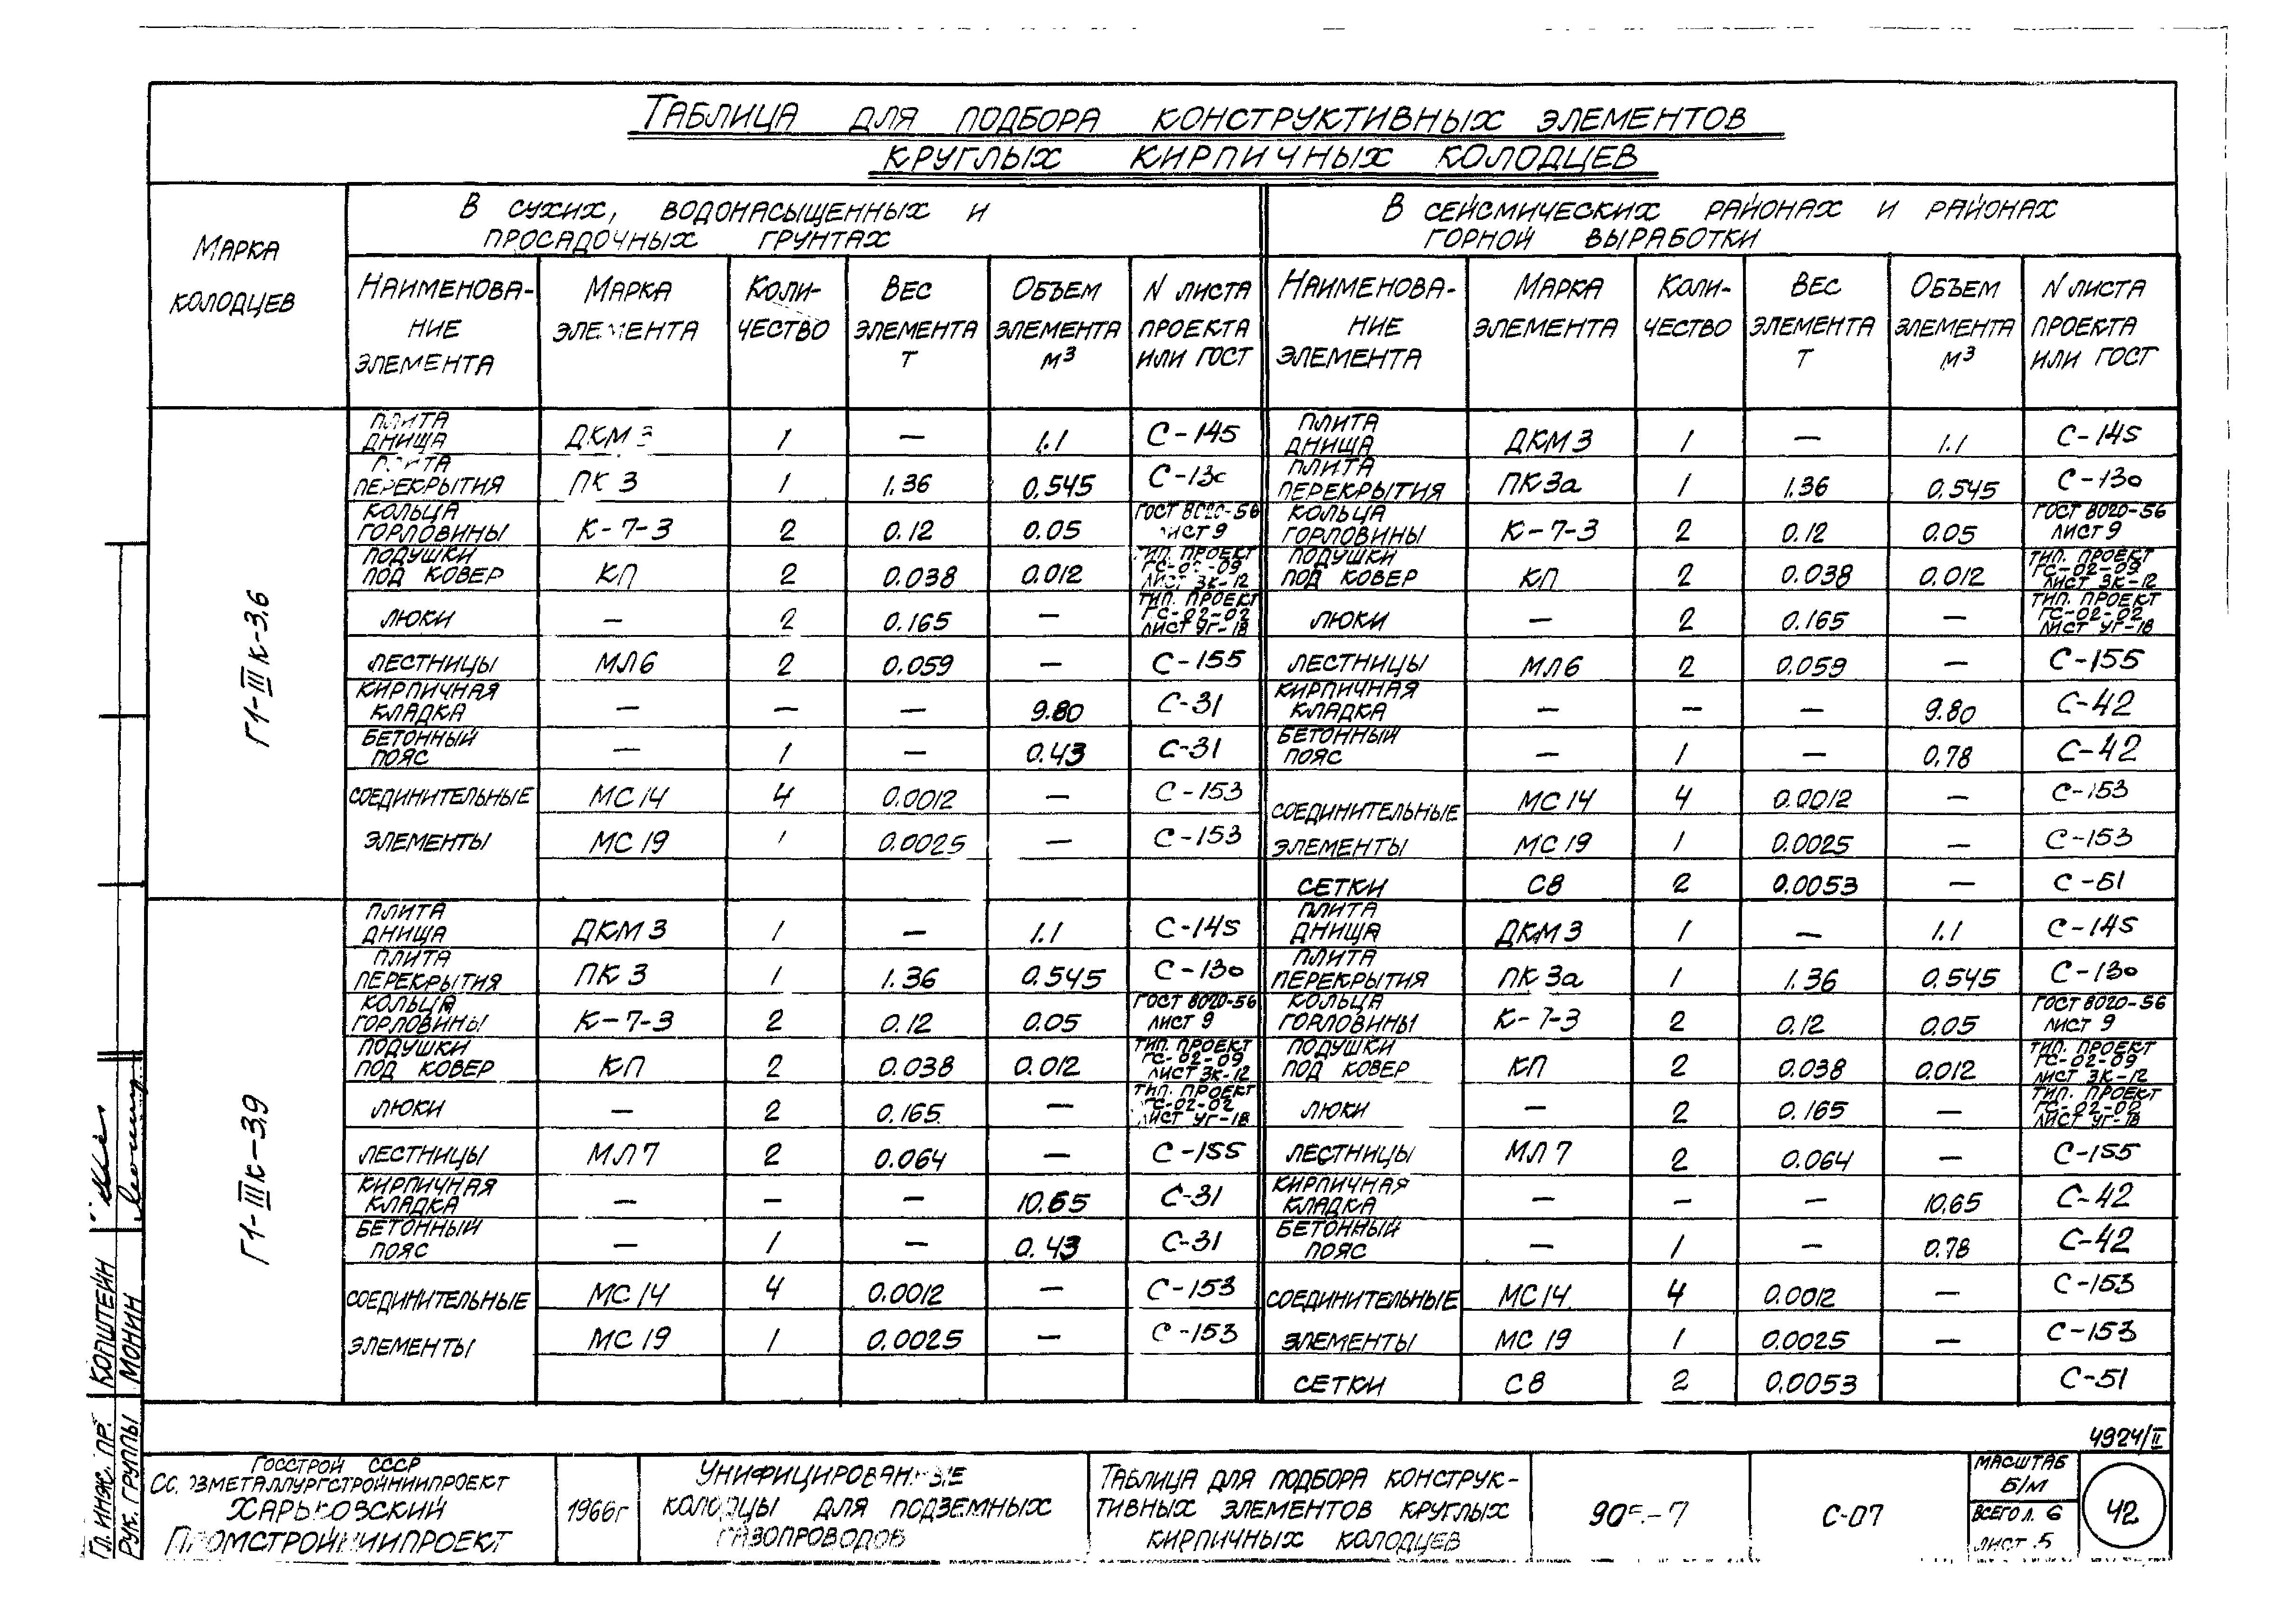 ТАБЛИЦА ДЛЯ ПОДБОРА КОНСТРУКТИВНЫХ ЭЛЕМЕНТОВ
КРУГЛЫХ КИРПИЧНЫХ КОЛОДЦЕВ
МАРКА КОЛОДЦЕВ
В СУХИХ, ВОДОНАСЫЩЕННЫХ И
ПРОСАДОЧНЫХ ГРУНТАХ
В СЕЙСМИЧЕСКИХ РАЙОНАХ И РАЙОНАХ
ГОРНОЙ ВЫРАБОТКИ
НАИМЕНОВА-НИЕ ЭЛЕМЕНТА МАРКА ЭЛЕМЕНТА КОЛИ-ЧЕСТВО ВЕС ЭЛЕМЕНТА Т ОБЪЕМ ЭЛЕМЕНТА М³ N ЛИСТА ПРОЕКТА ИЛИ ГОСТ НАИМЕНОВА-НИЕ ЭЛЕМЕНТА МАРКА ЭЛЕМЕНТА КОЛИ-ЧЕСТВО ВЕС ЭЛЕМЕНТА Т ОБЪЕМ ЭЛЕМЕНТА М³ N ЛИСТА ПРОЕКТА ИЛИ ГОСТ
Г1-IIIК-3.6
ПЛИТА ДНИЩА ДКМ 3 1 — 1.1 С-145 ПЛИТА ДНИЩА ДКМ 3 1 — 1.1 С-145
ПЛИТА ПЕРЕКРЫТИЯ ПК 3 1 1.36 0.545 С-130 ПЛИТА ПЕРЕКРЫТИЯ ПК 3а 1 1.36 0.545 С-130
КОЛЬЦА ГОРЛОВИНЫ К-7-3 2 0.12 0.05 ГОСТ 8020-56 ЛИСТ 9 КОЛЬЦА ГОРЛОВИНЫ К-7-3 2 0.12 0.05 ГОСТ 8020-56 ЛИСТ 9
ПОДУШКИ ПОД КОВЕР КП 2 0.038 0.012 ТИП. ПРОЕКТ ГС-02-09 ЛИСТ ЗК-12 ПОДУШКИ ПОД КОВЕР КП 2 0.038 0.012 ТИП. ПРОЕКТ ГС-02-09 ЛИСТ ЗК-12
ЛЮКИ — 2 0.165 — ТИП. ПРОЕКТ ГС-02-02 ЛИСТ УГ-18 ЛЮКИ — 2 0.165 — ТИП. ПРОЕКТ ГС-02-02 ЛИСТ УГ-18
ЛЕСТНИЦЫ МЛ6 2 0.059 — С-155 ЛЕСТНИЦЫ МЛ6 2 0.059 — С-155
КИРПИЧНАЯ КЛАДКА — — — 9.80 С-31 КИРПИЧНАЯ КЛАДКА — — — 9.80 С-42
БЕТОННЫЙ ПОЯС — 1 — 0.43 С-31 БЕТОННЫЙ ПОЯС — 1 — 0.78 С-42
СОЕДИНИТЕЛЬНЫЕ МС 14 4 0.0012 — С-153 СОЕДИНИТЕЛЬНЫЕ МС 14 4 0.0012 — С-153
ЭЛЕМЕНТЫ МС 19 1 0.0025 — С-153 ЭЛЕМЕНТЫ МС 19 1 0.0025 — С-153
СЕТКИ С8 2 0.0053 — С-51
Г1-IIIК-3,9
ПЛИТА ДНИЩА ДКМ 3 1 — 1.1 С-145 ПЛИТА ДНИЩА ДКМ 3 1 — 1.1 С-145
ПЛИТА ПЕРЕКРЫТИЯ ПК 3 1 1.36 0.545 С-130 ПЛИТА ПЕРЕКРЫТИЯ ПК 3а 1 1.36 0.545 С-130
КОЛЬЦА ГОРЛОВИНЫ К-7-3 2 0.12 0.05 ГОСТ 8020-56 ЛИСТ 9 КОЛЬЦА ГОРЛОВИНЫ К-7-3 2 0.12 0.05 ГОСТ 8020-56 ЛИСТ 9
ПОДУШКИ ПОД КОВЕР КП 2 0.038 0.012 ТИП. ПРОЕКТ ГС-02-09 ЛИСТ ЗК-12 ПОДУШКИ ПОД КОВЕР КП 2 0.038 0.012 ТИП. ПРОЕКТ ГС-02-09 ЛИСТ ЗК-12
ЛЮКИ — 2 0.165 — ТИП. ПРОЕКТ ГС-02-02 ЛИСТ УГ-18 ЛЮКИ — 2 0.165 — ТИП. ПРОЕКТ ГС-02-02 ЛИСТ УГ-18
ЛЕСТНИЦЫ МЛ7 2 0.064 — С-155 ЛЕСТНИЦЫ МЛ7 2 0.064 — С-155
КИРПИЧНАЯ КЛАДКА — — — 10.65 С-31 КИРПИЧНАЯ КЛАДКА — — — 10.65 С-42
БЕТОННЫЙ ПОЯС — 1 — 0.43 С-31 БЕТОННЫЙ ПОЯС — 1 — 0.78 С-42
СОЕДИНИТЕЛЬНЫЕ МС 14 4 0.0012 — С-153 СОЕДИНИТЕЛЬНЫЕ МС 14 4 0.0012 — С-153
ЭЛЕМЕНТЫ МС 19 1 0.0025 — С-153 ЭЛЕМЕНТЫ МС 19 1 0.0025 — С-153
СЕТКИ С8 2 0.0053 С-51
ГЛ. ИНЖ. ПР. КОПШТЕЙН
РУК. ГРУППЫ МОНИН
4924/II
ГОССТРОЙ СССР
СОЮЗМЕТАЛЛУРГСТРОЙНИИПРОЕКТ
ХАРЬКОВСКИЙ
ПРОМСТРОЙНИИПРОЕКТ
1966г
УНИФИЦИРОВАННЫЕ
КОЛОДЦЫ ДЛЯ ПОДЗЕМНЫХ
ГАЗОПРОВОДОВ
ТАБЛИЦА ДЛЯ ПОДБОРА КОНСТРУК-
ТИВНЫХ ЭЛЕМЕНТОВ КРУГЛЫХ
КИРПИЧНЫХ КОЛОДЦЕВ
С-07
МАСШТАБ
Б/М
ВСЕГО Л. 6
ЛИСТ 5
42